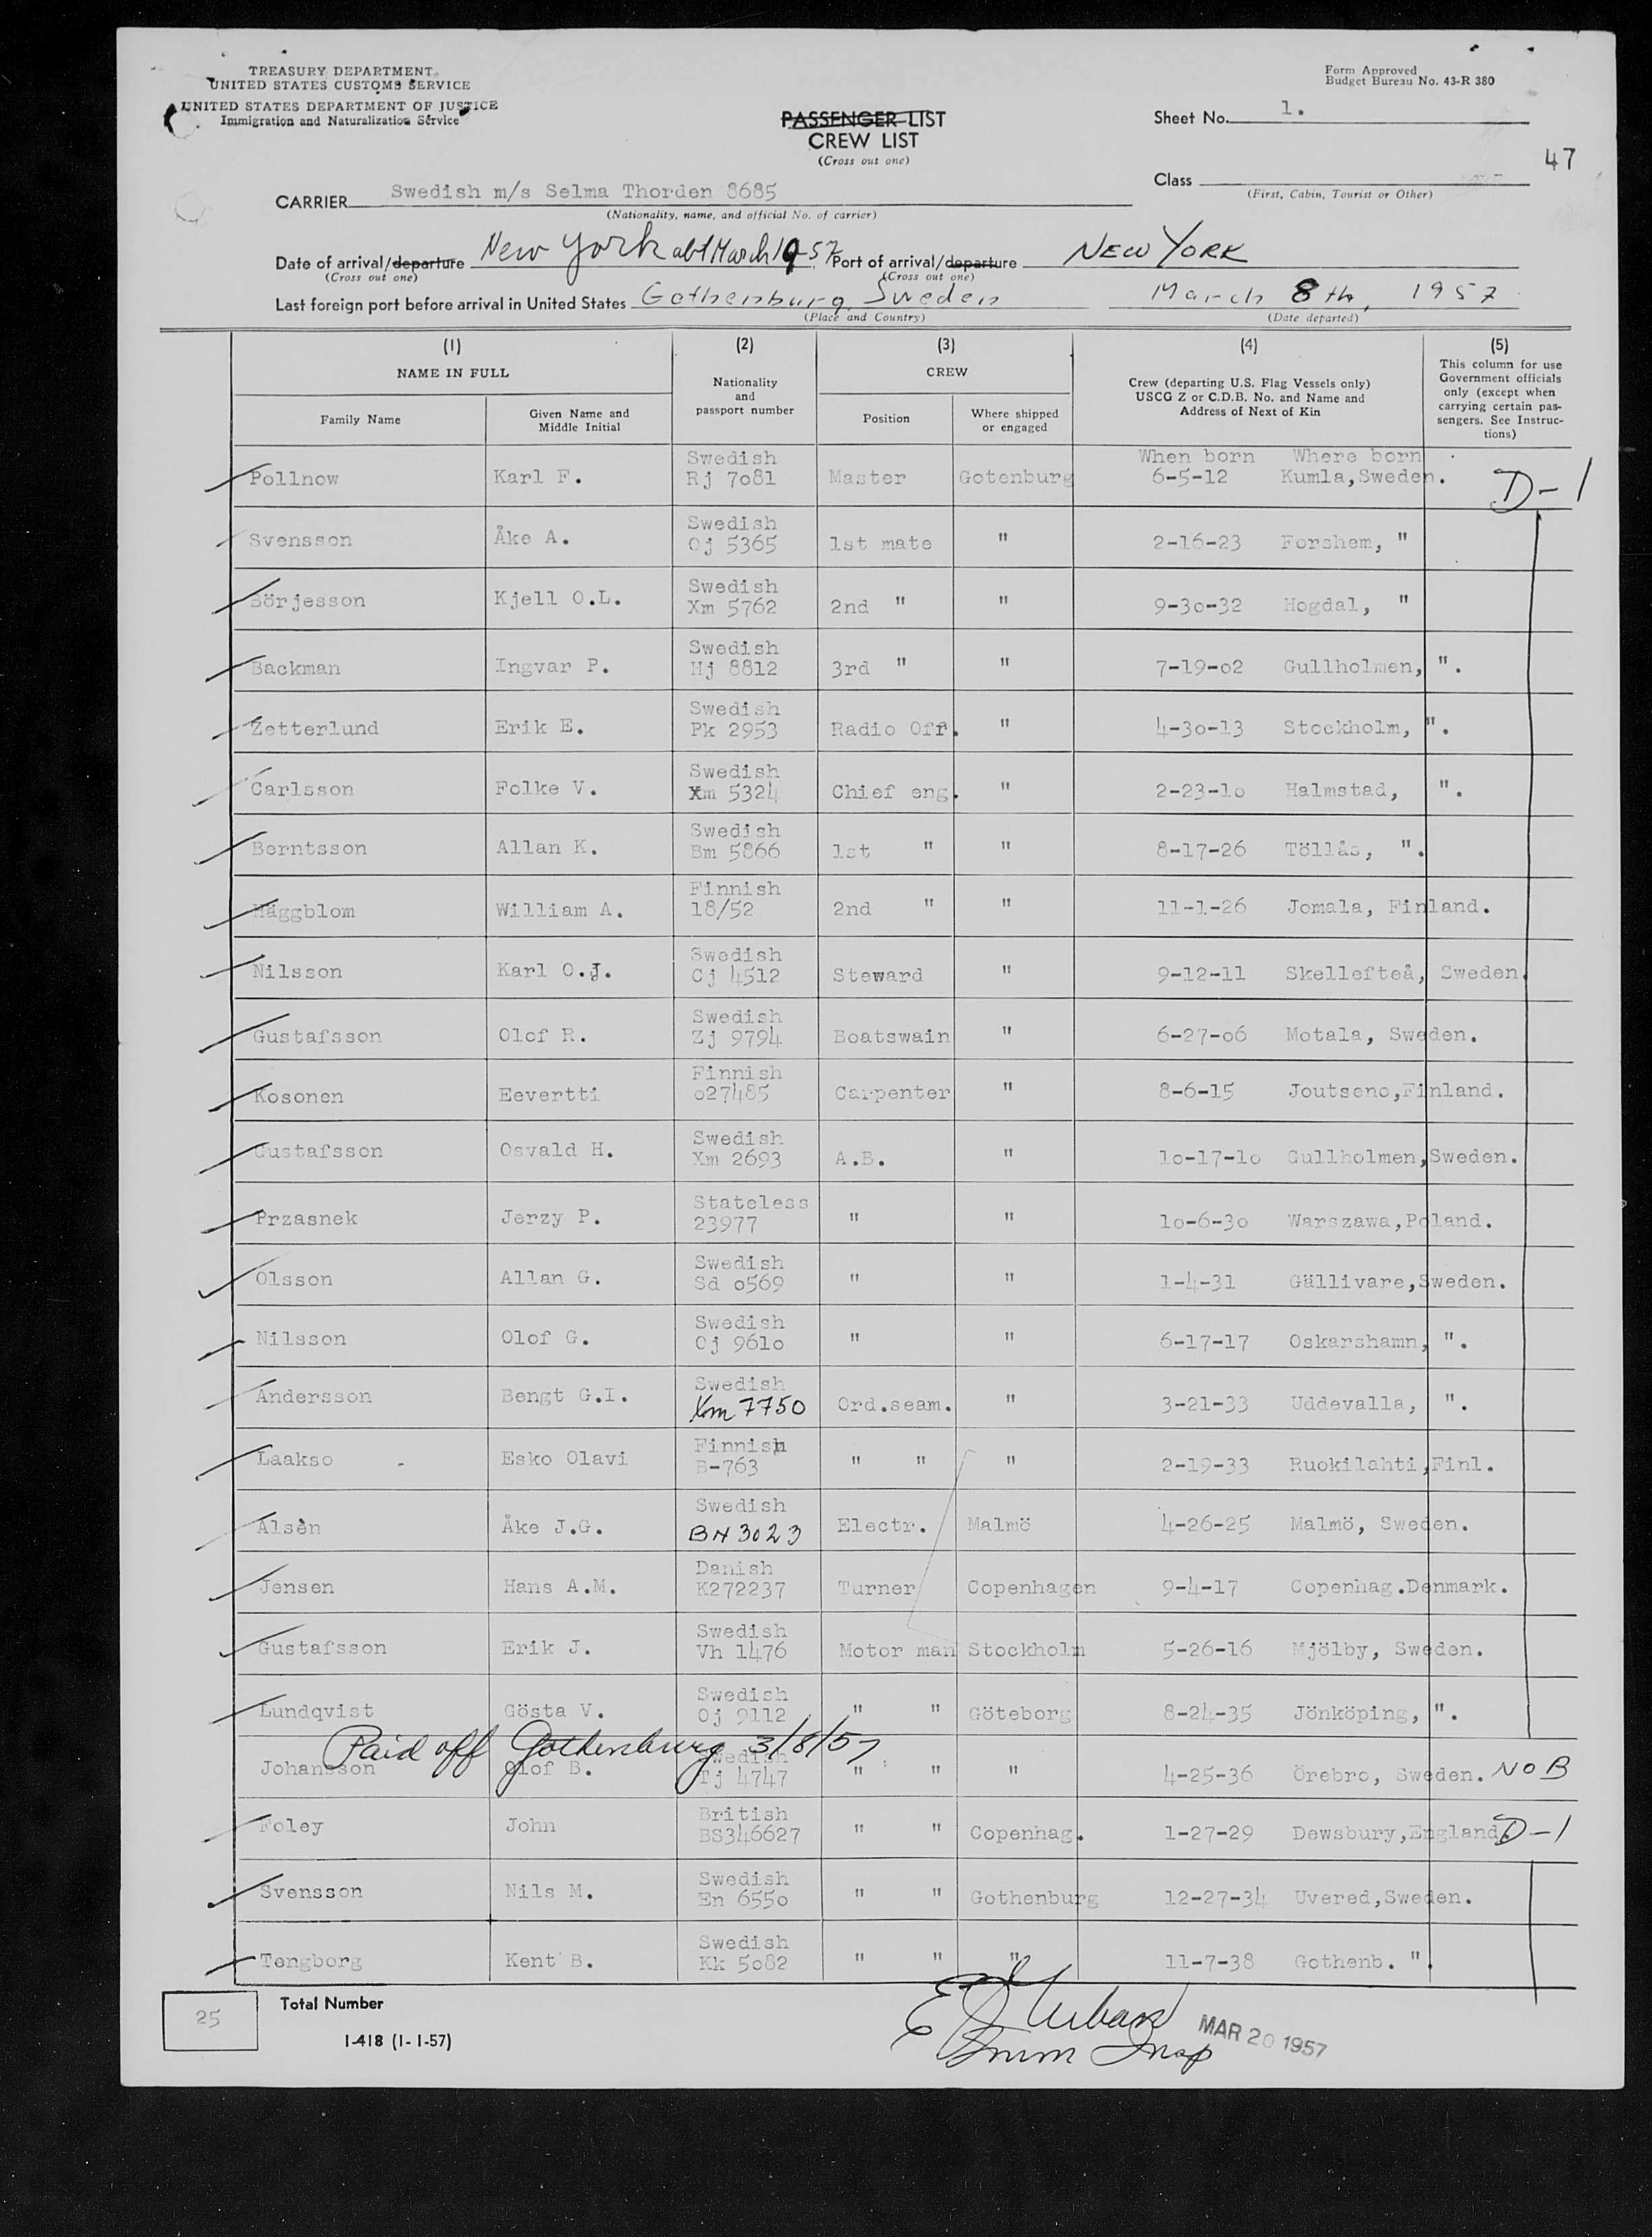 TREASURY DEPARTMENT
UNITED STATES CUSTOMS SERVICE
UNITED STATES DEPARTMENT OF JUSTICE
Immigration and Naturalization Service
Form Approved
Budget Bureau No. 43-R 380
PASSENGER LIST
CREW LIST
(Cross out one)
Sheet No. 1.
47
Class
(First, Cabin, Tourist or Other)
CARRIER Swedish m/s Selma Thorden 8685
(Nationality, name, and official No. of carrier)
Date of arrival/departure New York abt March 19-57. Port of arrival/departure NEW YORK
(Cross out one) (Cross out one)
Last foreign port before arrival in United States Gothenburg, Sweden March 8th, 1957
(Place and Country) (Date departed)
(1) (2) (3) (4) (5)
NAME IN FULL
Family Name
Given Name and Middle Initial
Nationality and passport number
CREW
Position
Where shipped or engaged
Crew (departing U.S. Flag Vessels only)
USCG Z or C.D.B. No. and Name and
Address of Next of Kin
This column for use
Government officials
only (except when
carrying certain pas-
sengers. See Instruc-
tions)
When born Where born
Pollnow Karl F. Swedish Rj 7o81 Master Gotenburg 6-5-12 Kumla,Sweden. D-1
Svensson Åke A. Swedish Oj 5365 1st mate " 2-16-23 Forshem, "
Börjesson Kjell O.L. Swedish Xm 5762 2nd " " 9-3o-32 Hogdal, "
Backman Ingvar P. Swedish Hj 8812 3rd " " 7-19-o2 Gullholmen, ".
Zetterlund Erik E. Swedish Pk 2953 Radio Off. " 4-3o-13 Stockholm, ".
Carlsson Folke V. Swedish Xm 5324 Chief eng. " 2-23-1o Halmstad, ".
Berntsson Allan K. Swedish Bm 5866 1st " " 8-17-26 Töllås, ".
Häggblom William A. Finnish 18/52 2nd " " 11-1-26 Jomala, Finland.
Nilsson Karl O.J. Swedish Cj 4512 Steward " 9-12-11 Skellefteå, Sweden.
Gustafsson Olof R. Swedish Zj 9794 Boatswain " 6-27-o6 Motala, Sweden.
Kosonen Eevertti Finnish o27485 Carpenter " 8-6-15 Joutseno,Finland.
Gustafsson Osvald H. Swedish Xm 2693 A.B. " 1o-17-1o Gullholmen,Sweden.
Przasnek Jerzy P. Stateless 23977 " " 1o-6-3o Warszawa,Poland.
Olsson Allan G. Swedish Sd o569 " " 1-4-31 Gällivare,Sweden.
Nilsson Olof G. Swedish Oj 961o " " 6-17-17 Oskarshamn, ".
Andersson Bengt G.I. Swedish Xm 7750 Ord.seam. " 3-21-33 Uddevalla, ".
Laakso Esko Olavi Finnish B-763 " " " 2-19-33 Ruokilahti,Finl.
Alsèn Åke J.G. Swedish BN 3023 Electr. Malmö 4-26-25 Malmö, Sweden.
Jensen Hans A.M. Danish K272237 Turner Copenhagen 9-4-17 Copenhag.Denmark.
Gustafsson Erik J. Swedish Vh 1476 Motor man Stockholm 5-26-16 Mjölby, Sweden.
Lundqvist Gösta V. Swedish Oj 9112 " " Göteborg 8-24-35 Jönköping, ".
Paid off Gothenburg 3/8/57
Johansson Olof B. Swedish Tj 4747 " " " 4-25-36 Örebro, Sweden. NOB
Foley John British BS346627 " " Copenhag. 1-27-29 Dewsbury,England. D-1
Svensson Nils M. Swedish En 655o " " Gothenburg 12-27-34 Uvered,Sweden.
Tengborg Kent B. Swedish Kk 5o82 " " " 11-7-38 Gothenb. ".
25 Total Number
I-418 (1-1-57)
Urban
Imm Insp
MAR 20 1957